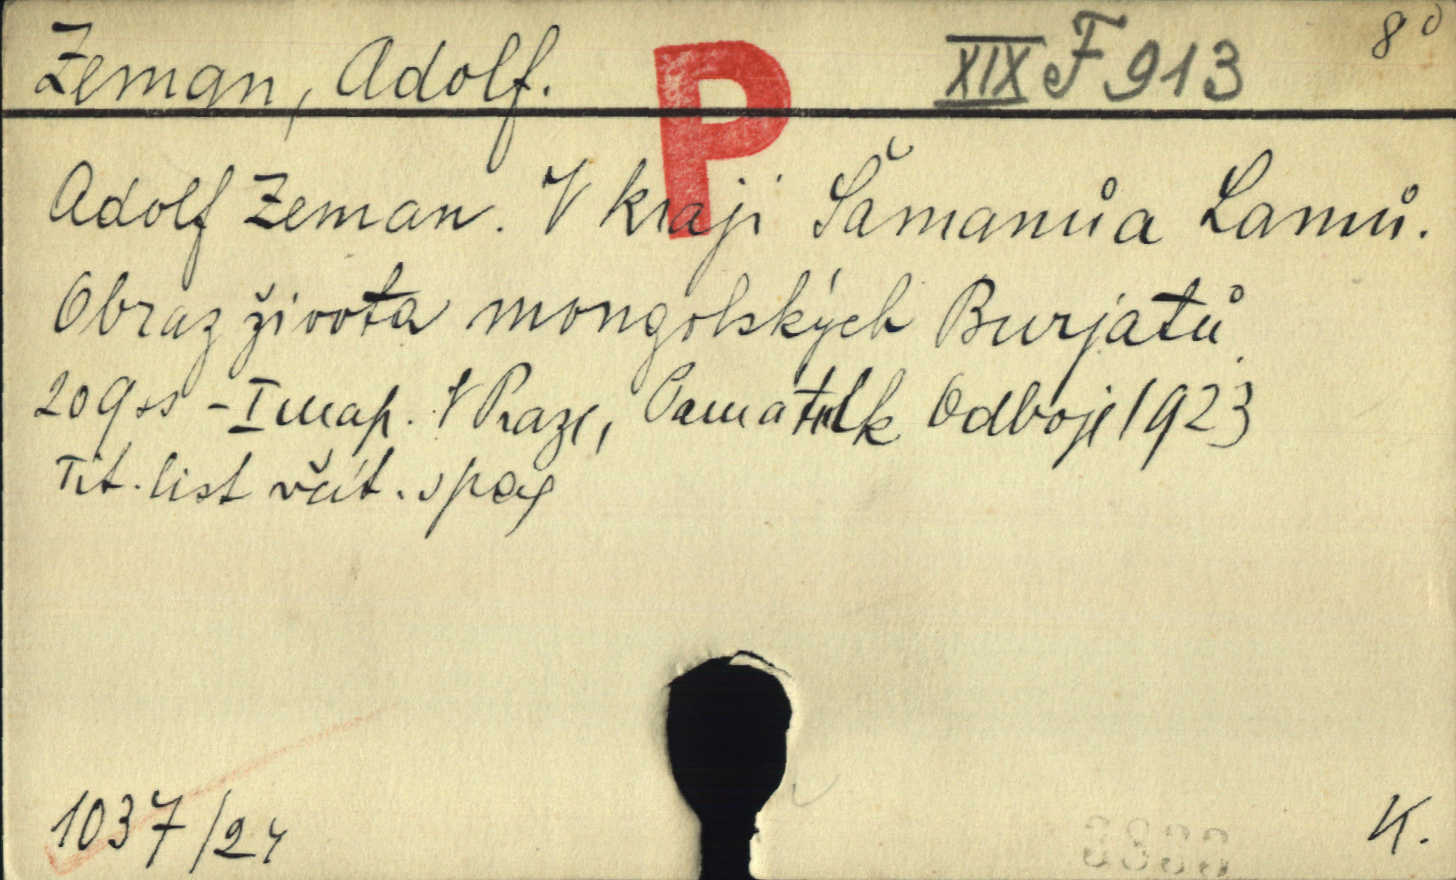 Zeman, Adolf.
P
XIX F 913
8°
Adolf Zeman. V kraji Šamanů a Lamů.
Obraz života mongolských Burjatů.
209 ss - I map. V Praze, Památník Odboje 1923
Tit. list včít. spag
1037/24
K.